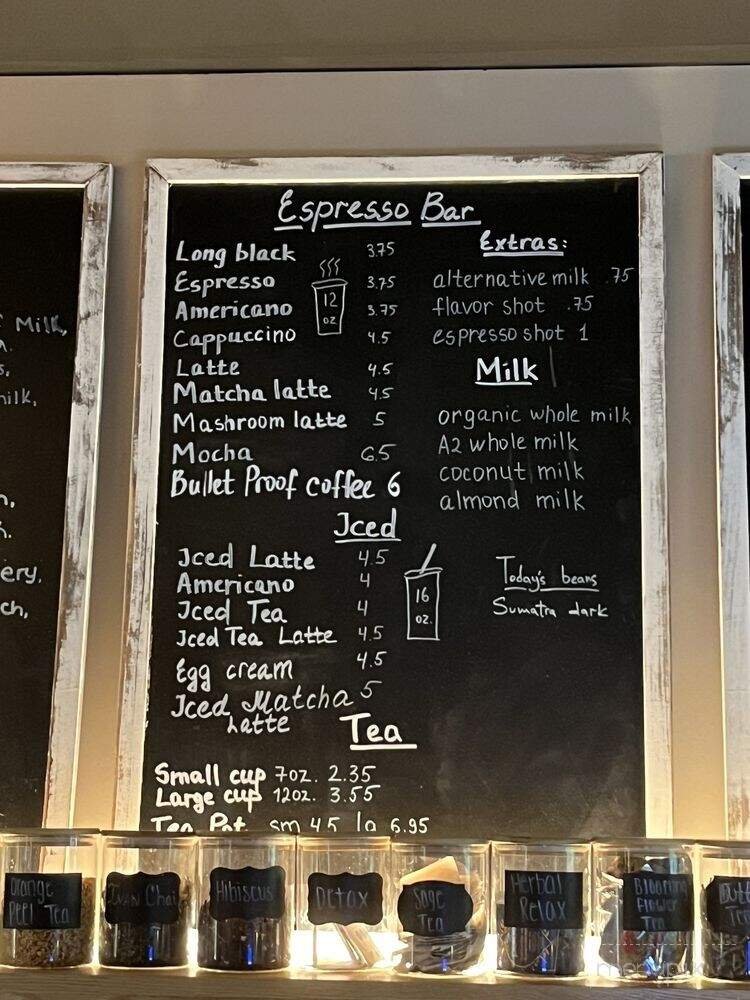 Milk,
milk,
ery.
ch,
Espresso Bar
Long black 3.75
Espresso 3.75
Americano 3.75
Cappuccino 4.5
Latte 4.5
Matcha latte 4.5
Mashroom latte 5
Mocha 6.5
Bullet Proof coffee 6
12
oz
Extras:
alternative milk .75
flavor shot .75
espresso shot 1
Milk
organic whole milk
A2 whole milk
coconut milk
almond milk
Iced
Iced Latte 4.5
Americano 4
Iced Tea 4
Iced Tea Latte 4.5
Egg cream 4.5
Iced Matcha 5
Latte
16
oz.
Today's beans
Sumatra dark
Tea
Small cup 7oz. 2.35
Large cup 12oz. 3.55
Tea Pot sm 4.5 lg 6.95
Orange
Peel Tea
Ivan Chai
Hibiscus
Detox
Sage
Tea
Herbal
Relax
Blooming
Flower
Tea